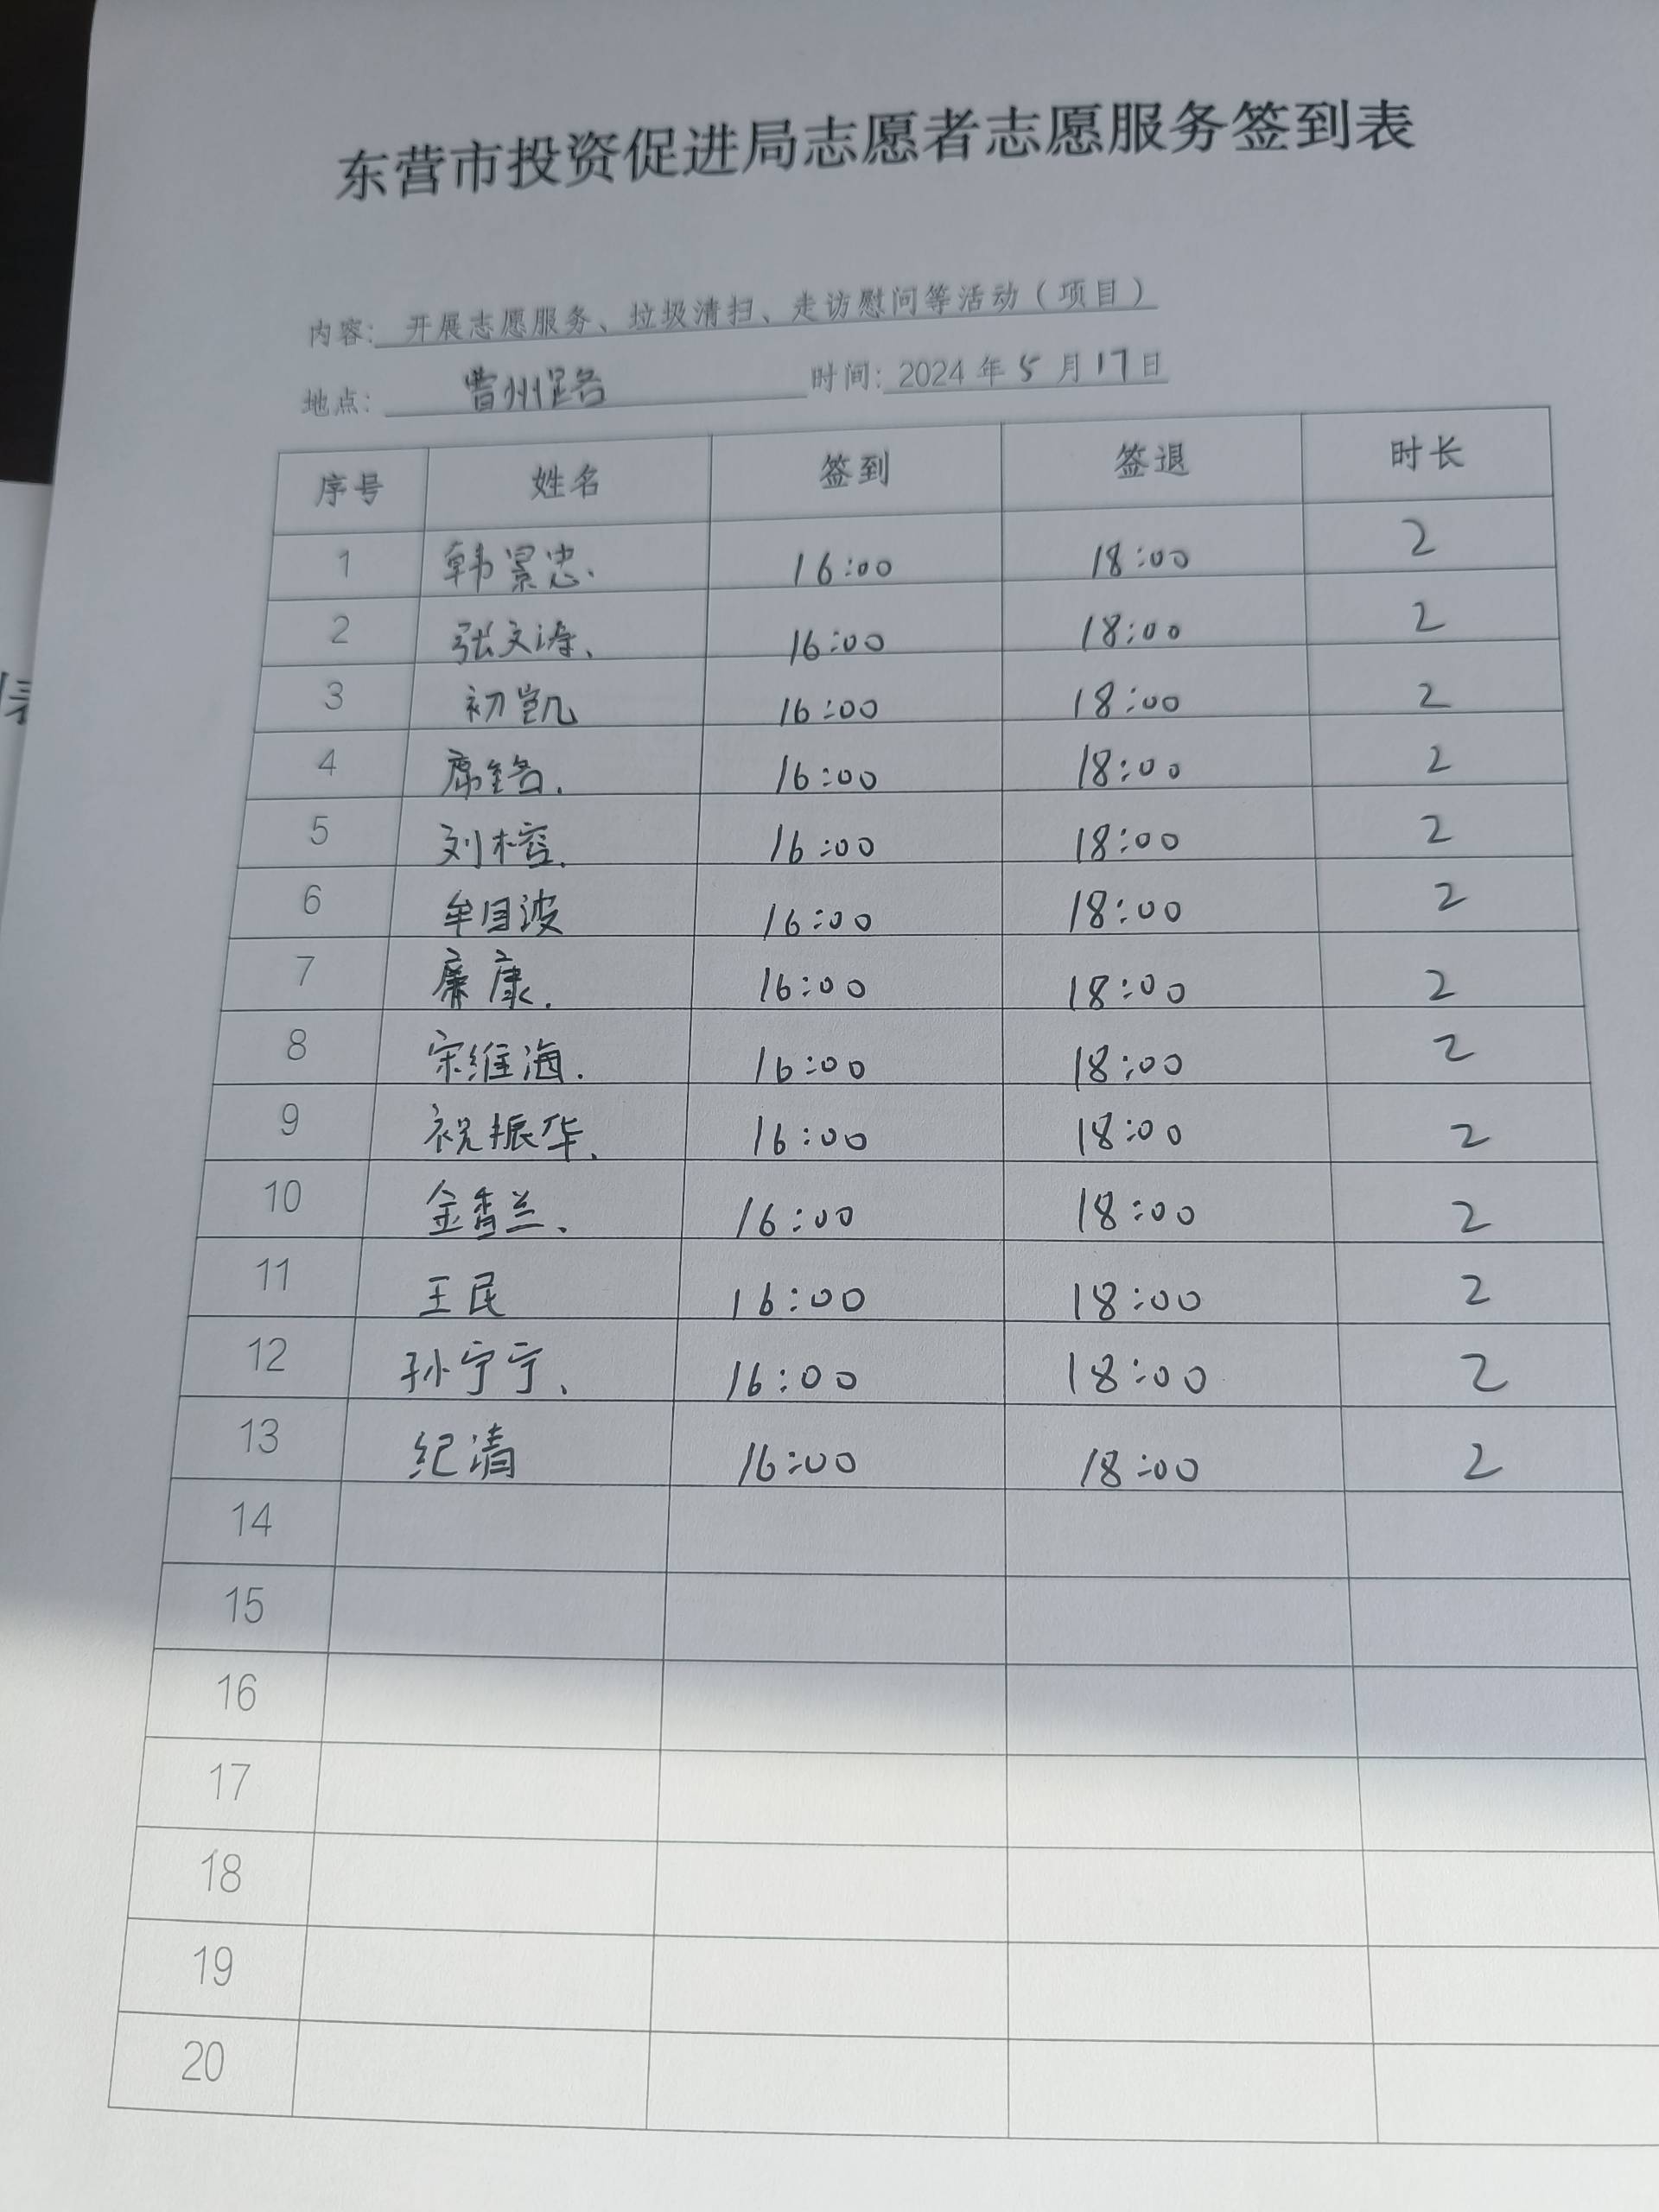 东营市投资促进局志愿者志愿服务签到表
内容: 开展志愿服务、垃圾清扫、走访慰问等活动（项目）
地点: 曹州路 时间: 2024 年 5 月 17 日
序号 姓名 签到 签退 时长
1 韩景忠. 16:00 18:00 2
2 张文涛、 16:00 18:00 2
3 初凯 16:00 18:00 2
4 席铭. 16:00 18:00 2
5 刘榕. 16:00 18:00 2
6 牟国波 16:00 18:00 2
7 廉康. 16:00 18:00 2
8 宋维海. 16:00 18:00 2
9 祝振华、 16:00 18:00 2
10 金香兰、 16:00 18:00 2
11 王民 16:00 18:00 2
12 孙宁宁、 16:00 18:00 2
13 纪清 16:00 18:00 2
14
15
16
17
18
19
20